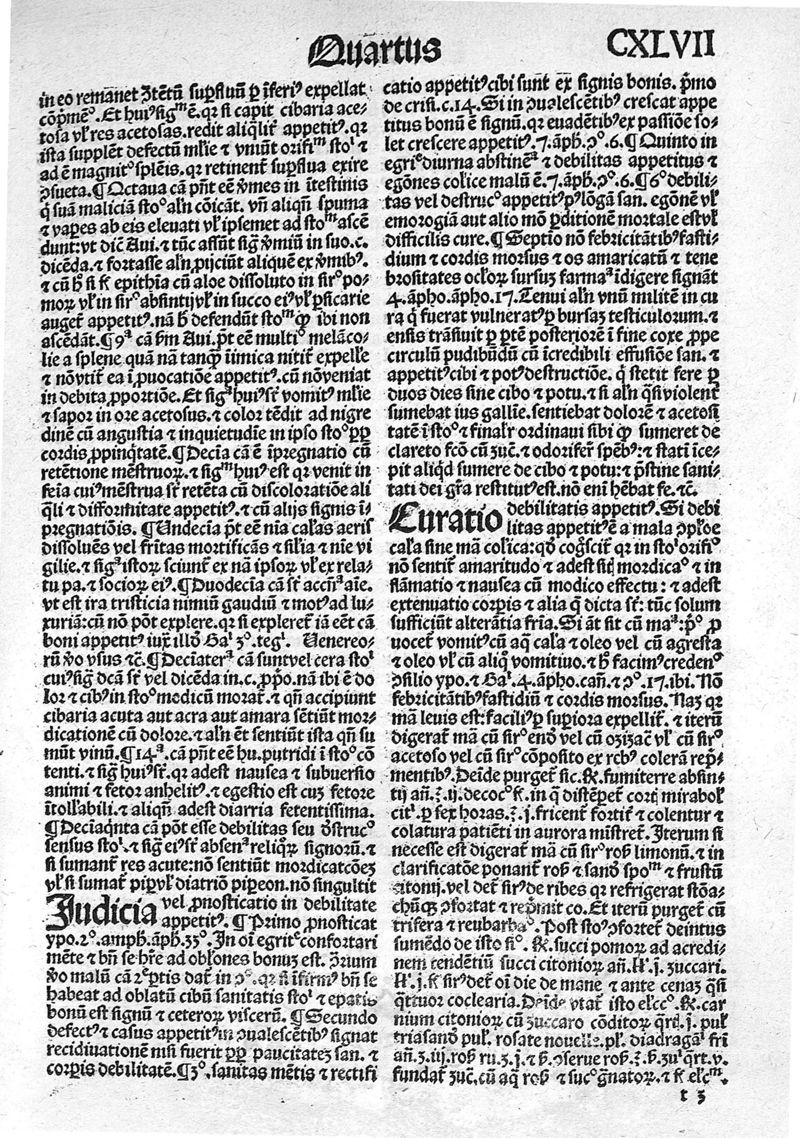 Quartus
CXLVII
in eo remanet ⁊tētū sup̄fluū ꝑ īferiꝰ expellat
cōp̄meᵒ. Et huiꝰ sigᵐ ē. qꝛ si capit cibaria ace-
tosa vl̓ res acetosas. redit aliqᷣlit̓ appetitꝰ. qꝛ
ista supplēt defectū ml̓ie ⁊ vniūt orifiᵐ stoⁱ ⁊
ad ē magnitᵒ splēis. qꝛ retinent̄ sup̄flua exire
ꝯsueta. ¶ Octaua cā pn̄t eē v̓mes in ītestinis
q̄ suā maliciā stoᵒ al̓n cōicāt. vn̄ aliqn̄ spuma
⁊ vapeꝰ ab eis eleuati vl̓ ipsemet ad stoᵐ ascē
dunt: vt dic̄ Aui. ⁊ tūc assūt sig̓ v̓miū in suo. c.
dicēda. ⁊ fortasse al̓n ꝓijciūt aliquē ex v̓mibꝰ.
⁊ cū ḣ si fi epithia cū aloe dissoluto in sirᵒ po-
moꝝ vl̓ in sirᵒ absintij vl̓ in succo eiꝰ vl̓ ꝑsicarie
auget̄ appetitꝰ. nā ḣ defendūt stoᵐ ꝙ ibi non
ascēdāt. ¶ 9ᵃ cā ẜm Aui. pt̄ eē multiᵒ melāco-
lie a splene quā nā tanqᷓ̄ īimica nitit̄ expelle
⁊ nō vtit̄ ea ī ꝓuocatiōe appetitꝰ. cū nō veniat
in debita ꝓportiōe. Et sigᵃ huiꝰ sr̄ vomitꝰ ml̓ie
⁊ sapor in ore acetosus. ⁊ color tēdit ad nigre
dinē cū angustia ⁊ inquietudīe in ipso stoᵒ ꝓꝑ
cordis ꝓpinq̄tatē. ¶ Deciā cā ē īpregnatio cū
retētione mēstruoꝝ. ⁊ sigᵐ huiꝰ est qꝛ venit in
feīa cuiꝰ mēstrua sr̄ retēta cū discoloratiōe ali
q̄li ⁊ difformitate appetitꝰ. ⁊ cū alijs signis ī-
pregnatiōis. ¶ Undeciā pt̄ eē nīa cal̓as aeris
dissoluēs vel fri̓tas mortificās ⁊ silia ⁊ nīe vi
gilie. ⁊ sigᵃ istoꝝ sciunt̄ ex nā ipsoꝝ vl̓ ex rela-
tu pa. ⁊ socioꝝ eiꝰ. ¶ Duodecia cā sr̄ accn̄ᵃ aīe.
vt est ira tristicia nimiū gaudiū ⁊ motꝰ ad lu-
xuriā: cū nō pōt explere. qꝛ si expleret̄ iā eēt cā
boni appetitꝰ iux̄ illōꝰ Gaⁱ 3ᵒ. tegⁱ. Venereo-
rū v̓o vsus ⁊c̄. ¶ Deciaterᵃ cā sunt vlcera stoⁱ
cuiꝰ sig̓ dc̄ā sr̄ vel dicēda in. c. ꝓpꝓ. nā ibi ē do
lor ⁊ cibꝰ in stoᵒ modicū morat̄. ⁊ qn̄ accipiunt
cibaria acuta aut acra aut amara sētiūt mor-
dicationē cū dolore. ⁊ al̓n ēt sentiūt ista qn̄ su
mūt vinū. ¶ 14ᵃ. cā pn̄t eē hu. putridi ī stoᵒ cō
tenti. ⁊ sig̓ huiꝰ sr̄. qꝛ adest nausea ⁊ subuersio
animi ⁊ fetor anhelitꝰ. ⁊ egestio est cuꝫ fetore
ītollabili. ⁊ aliqn̄ adest diarria fetentissima.
¶ Deciaqᷣnta cā pōt esse debilitas seu ꝺstrucᵒ
sensus stoⁱ. ⁊ sig̓ eiꝰ sr̄ absenᵃ reliqꝝ signoꝝ. ⁊
si sumant̄ res acute: nō sentiūt mordicatōeꝫ
vl̓ si sumat̄ pip̄ vl̓ diatriō pipeon. nō singultit
Judicia vel ꝓnosticatio in debilitate
appetitꝰ. ¶ Primo ꝓnosticat
ypo. 2ᵒ. amph̄. aph̄. 35ᵒ. In oī egritᵉ confortari
mēte ⁊ bn̄ se hr̄e ad oblōnes bonuꝫ est. Ꝯrium
v̓o malū cā 2ᵉ ptis dat̄ in ꝯᵒ. qꝛ si īfirmꝰ bn̄ se
habeat ad oblatū cibū sanitatis stoⁱ ⁊ epatis
bonū est signū ⁊ ceteroꝝ viscerū. ¶ Secundo
defectꝰ ⁊ casus appetitꝰ in ꝯualescētibꝰ signat
recidiuationē nisi fuerit ꝓꝑ paucitateꝫ san. ⁊
corꝑis debilitatē. ¶ 3ᵒ. sanitas mētis ⁊ rectifi
catio appetitꝰ cibi sunt ex signis bonis. pᷣmo
de crisi. c. 14. Si in ꝯualescētibꝰ crescat appe
titus bonū ē signū. qꝛ euadētibꝰ ex passiōe so-
let crescere appetitꝰ. 7. aph̄. ꝯᵒ. 6. ¶ Quinto in
egriᵉ diurna abstinēᵃ ⁊ debilitas appetitus ⁊
egōnes colice malū ē. 7. aph̄. ꝯᵒ. 6. ¶ 6ᵒ debili-
tas vel destrucᵒ appetitꝰ pꝰ lōgā san. egōnē vl̓
emorogiā aut alio mō ꝑditionē mortale est vl̓
difficilis cure. ¶ Septio nō febricitātibꝰ fasti-
dium ⁊ cordis morsus ⁊ os amaricatū ⁊ tene
brositates ocl̓oꝝ sursuꝫ farmaᵃ īdigere signāt
4. apho. aph̄. 17. Tenui al̓n vnū militē in cu
ra q̄ fuerat vulneratꝰ ꝑ bursaꝫ testiculorum. ⁊
ensis trāsiuit ꝑ ptē posteriorē ī fine coxe ꝓpe
circulū pudibūdū cū īcredibili effusiōe san. ⁊
appetitꝰ cibi ⁊ potꝰ destructiōe. q̄ stetit fere ꝑ
duos dies sine cibo ⁊ potu. ⁊ si al̓n q̄si violent̄
sumebat ius gallie. sentiebat dolorē ⁊ acetosi
tatē ī stoᵒ ⁊ finalr̄ ordinaui sibi ꝙ sumeret de
clareto fc̄o cū zuc̄. ⁊ odorifer̄ sp̄ebꝰ: ⁊ stati īce-
pit aliqᷣd sumere de cibo ⁊ potu: ⁊ pᷣstine sani-
tati dei gr̄a restitutꝰ est. nō enī hēbat fe. ⁊c̄.
Curatio debilitatis appetitꝰ. Si debi
litas appetitꝰ ē a mala ꝯpl̓oe
cal̓a sine mā colica: qd̓ cog̓scit̄ qꝛ in stoⁱ orifiᵒ
nō sentit̄ amaritudo ⁊ adest siti mordicaᵒ ⁊ in
flāmatio ⁊ nausea cū modico effectu: ⁊ adest
extenuatio corꝑis ⁊ alia q̄ dicta sr̄: tūc solum
sufficiūt alterātia fri̓a. Si āt sit cū maᵃ: pᵒ ꝓ
uocet̄ vomitꝰ cū aq̄ cal̓a ⁊ oleo vel cū agresta
⁊ oleo vl̓ cū aliqᵒ vomitiuo. ⁊ ḣ facimꝰ credenᵒ
ꝯsilio ypo. ⁊ Gaⁱ. 4. apho. cañ. ⁊ ꝯᵒ. 17. ibi. Nō
febricitātibꝰ fastidiū ⁊ cordis morsus. Naꝫ qꝛ
mā leuis est: faciliꝰ ꝑ supiora expellit̄. ⁊ iterū
digerat̄ mā cū sirᵒ endᵒ vel cū oꝫizacᵃ vl̓ cū sirᵒ
acetoso vel cū sirᵒ cōposito ex rebꝰ colerā rep̄-
mentibꝰ. Deīde purget̄ sic. ℞. fumiterre absin-
tij añ. ℥. ij. decocᵒ fi. in q̄ distēꝑet̄ cort̓ mirabol̓
citⁱ. ꝑ sex horas. ℥. j. fricent̄ fortit̄ ⁊ colentur ⁊
colatura patiēti in aurora mīstret̄. Iterum si
necesse est digerat̄ mā cū sirᵒ rob̓ limonū. ⁊ in
clarificatōe ponant̄ rob̓ ⁊ sandᵒ spoᵐ ⁊ frustū
citonij. vel det̄ sirꝰ de ribes qꝛ refrigerat stōa-
chūqꝫ ꝯfortat ⁊ rep̄mit co. Et iterū purget̄ cū
trifera ⁊ reubarbᵒ. Post stoꝰ ꝯfortet̄ deintus
sumēdo de isto siᵒ. ℞. succi pomoꝝ ad acredi-
nem tendētiū succi citonioꝝ añ. ℔. j. zuccari.
℔. j. fi sirꝰ det̄ oī die de mane ⁊ ante cenaꝫ q̄si
q̄ttuor coclearia. Deīde vtat̄ isto el̓cᵒ. ℞. car
nium citonioꝝ cū zuccaro cōditoꝝ qrt̓. j. pul̓
triasandᵒ pul̓. rosate nouelle. pl̓. diadragāⁱ fri̓
añ. ʒ. iij. rob̓ ru. ʒ. j. ⁊ ḃ. ꝯserue rob̓. ℥. ḃ. zuⁱ qrt̓. v.
fundat̄ zuc̄. cū aq̄ rob̓ ⁊ sucᵒ g̓natoꝝ. ⁊ fi el̓cᵐ.
t 3